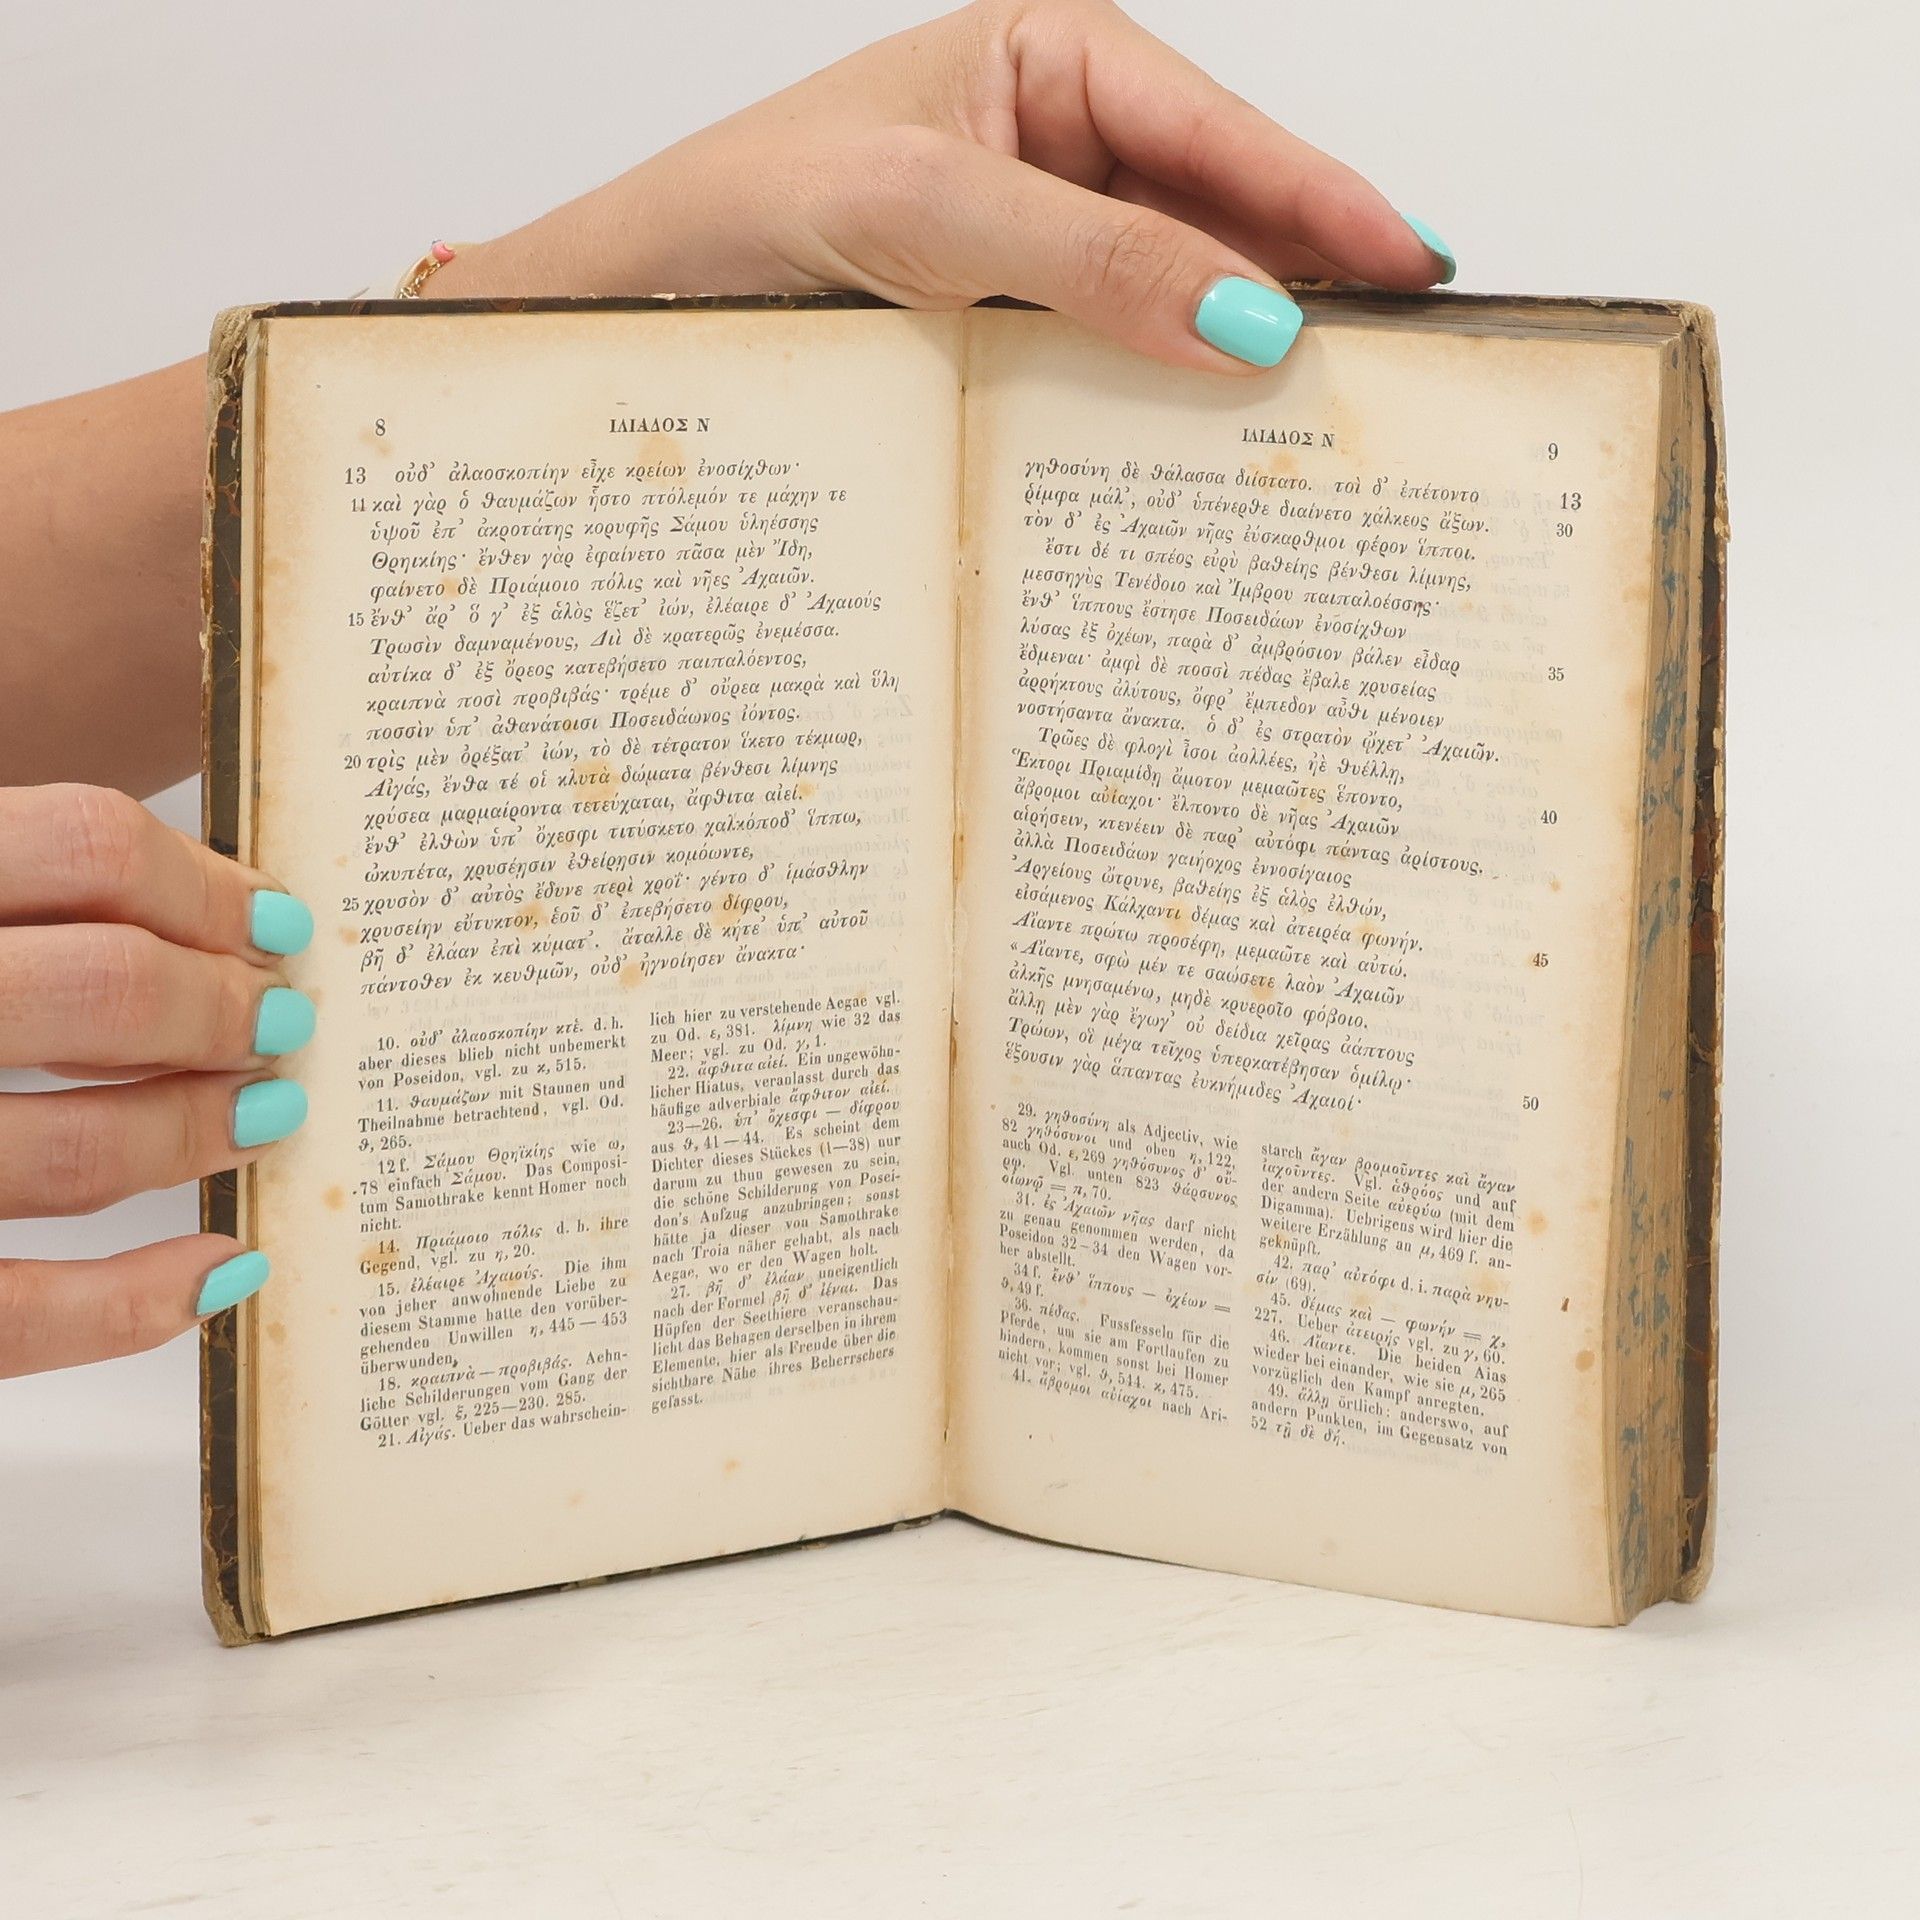 8 ΙΛΙΑΔΟΣ Ν
13 οὐδ' ἀλαοσκοπίην εἶχε κρείων ἐνοσίχθων·
11 καὶ γὰρ ὁ θαυμάζων ἧστο πτόλεμόν τε μάχην τε
ὑψοῦ ἐπ' ἀκροτάτης κορυφῆς Σάμου ὑληέσσης
Θρηικίης· ἔνθεν γὰρ ἐφαίνετο πᾶσα μὲν Ἴδη,
φαίνετο δὲ Πριάμοιο πόλις καὶ νῆες Ἀχαιῶν.
15 ἔνθ' ἄρ' ὅ γ' ἐξ ἁλὸς ἕζετ' ἰών, ἐλέαιρε δ' Ἀχαιούς
Τρωσὶν δαμναμένους, Διὶ δὲ κρατερῶς ἐνεμέσσα.
αὐτίκα δ' ἐξ ὄρεος κατεβήσετο παιπαλόεντος,
κραιπνὰ ποσὶ προβιβάς· τρέμε δ' οὔρεα μακρὰ καὶ ὕλη
ποσσὶν ὑπ' ἀθανάτοισι Ποσειδάωνος ἰόντος.
20 τρὶς μὲν ὀρέξατ' ἰών, τὸ δὲ τέτρατον ἵκετο τέκμωρ,
Αἰγάς, ἔνθα τέ οἱ κλυτὰ δώματα βένθεσι λίμνης
χρύσεα μαρμαίροντα τετεύχαται, ἄφθιτα αἰεί.
ἔνθ' ἐλθὼν ὑπ' ὄχεσφι τιτύσκετο χαλκόποδ' ἵππω,
ὠκυπέτα, χρυσέῃσιν ἐθείρῃσιν κομόωντε,
25 χρυσὸν δ' αὐτὸς ἔδυνε περὶ χροΐ· γέντο δ' ἱμάσθλην
χρυσείην εὔτυκτον, ἑοῦ δ' ἐπεβήσετο δίφρου,
βῆ δ' ἐλάαν ἐπὶ κύματ'. ἄταλλε δὲ κήτε' ὑπ' αὐτοῦ
πάντοθεν ἐκ κευθμῶν, οὐδ' ἠγνοίησεν ἄνακτα·
10. οὐδ' ἀλαοσκοπίην κτἑ. d. h.
aber dieses blieb nicht unbemerkt
von Poseidon, vgl. zu κ, 515.
11. θαυμάζων mit Staunen und
Theilnahme betrachtend, vgl. Od.
θ, 265.
12 f. Σάμου Θρηϊκίης wie ω,
78 einfach Σάμου. Das Composi-
tum Samothrake kennt Homer noch
nicht.
14. Πριάμοιο πόλις d. h. ihre
Gegend, vgl. zu η, 20.
15. ἐλέαιρε Ἀχαιούς. Die ihm
von jeher anwohnende Liebe zu
diesem Stamme hatte den vorüber-
gehenden Unwillen η, 445—453
überwunden.
18. κραιπνὰ—προβιβάς. Aehn-
liche Schilderungen vom Gang der
Götter vgl. ξ, 225—230. 285.
21. Αἰγάς. Ueber das wahrschein-
lich hier zu verstehende Aegae vgl.
zu Od. ε, 381. λίμνη wie 32 das
Meer; vgl. zu Od. γ, 1.
22. ἄφθιτα αἰεί. Ein ungewöhn-
licher Hiatus, veranlasst durch das
häufige adverbiale ἄφθιτον αἰεί.
23—26. ὑπ' ὄχεσφι — δίφρου
aus θ, 41—44. Es scheint dem
Dichter dieses Stückes (1—38) nur
darum zu thun gewesen zu sein,
die schöne Schilderung von Posei-
don's Aufzug anzubringen; sonst
hätte ja dieser von Samothrake
nach Troia näher gehabt, als nach
Aegae, wo er den Wagen holt.
27. βῆ δ' ἐλάαν uneigentlich
nach der Formel βῆ δ' ἰέναι. Das
Hüpfen der Seethiere veranschau-
licht das Behagen derselben in ihrem
Elemente, hier als Freude über die
sichtbare Nähe ihres Beherrschers
gefasst.
ΙΛΙΑΔΟΣ Ν 9
γηθοσύνη δὲ θάλασσα διίστατο. τοὶ δ' ἐπέτοντο 13
ῥίμφα μάλ', οὐδ' ὑπένερθε διαίνετο χάλκεος ἄξων. 30
τὸν δ' ἐς Ἀχαιῶν νῆας ἐύσκαρθμοι φέρον ἵπποι.
ἔστι δέ τι σπέος εὐρὺ βαθείης βένθεσι λίμνης,
μεσσηγὺς Τενέδοιο καὶ Ἴμβρου παιπαλοέσσης·
ἔνθ' ἵππους ἔστησε Ποσειδάων ἐνοσίχθων
λύσας ἐξ ὀχέων, παρὰ δ' ἀμβρόσιον βάλεν εἶδαρ 35
ἔδμεναι· ἀμφὶ δὲ ποσσὶ πέδας ἔβαλε χρυσείας
ἀρρήκτους ἀλύτους, ὄφρ' ἔμπεδον αὖθι μένοιεν
νοστήσαντα ἄνακτα. ὁ δ' ἐς στρατὸν ᾤχετ' Ἀχαιῶν.
Τρῶες δὲ φλογὶ ἶσοι ἀολλέες, ἠὲ θυέλλῃ,
Ἕκτορι Πριαμίδῃ ἄμοτον μεμαῶτες ἕποντο, 40
ἄβρομοι αὐίαχοι· ἔλποντο δὲ νῆας Ἀχαιῶν
αἱρήσειν, κτενέειν δὲ παρ' αὐτόφι πάντας ἀρίστους.
ἀλλὰ Ποσειδάων γαιήοχος ἐννοσίγαιος
Ἀργείους ὤτρυνε, βαθείης ἐξ ἁλὸς ἐλθών,
εἰσάμενος Κάλχαντι δέμας καὶ ἀτειρέα φωνήν. 45
Αἴαντε πρώτω προσέφη, μεμαῶτε καὶ αὐτώ.
«Αἴαντε, σφὼ μέν τε σαώσετε λαὸν Ἀχαιῶν
ἀλκῆς μνησαμένω, μηδὲ κρυεροῖο φόβοιο.
ἄλλῃ μὲν γὰρ ἔγωγ' οὐ δείδια χεῖρας ἀάπτους
Τρώων, οἳ μέγα τεῖχος ὑπερκατέβησαν ὁμίλῳ· 50
ἕξουσιν γὰρ ἅπαντας ἐυκνήμιδες Ἀχαιοί·
29. γηθοσύνη als Adjectiv, wie
82 γηθόσυνοι und oben η, 122,
auch Od. ε, 269 γηθόσυνος δ' οὔ-
ρῳ. Vgl. unten 823 θάρσυνος
οἰωνῷ = π, 70.
31. ἐς Ἀχαιῶν νῆας darf nicht
zu genau genommen werden, da
Poseidon 32—34 den Wagen vor-
her abstellt.
34 f. ἔνθ' ἵππους — ὀχέων =
θ, 49 f.
36. πέδας. Fussfesseln für die
Pferde, um sie am Fortlaufen zu
hindern, kommen sonst bei Homer
nicht vor; vgl. θ, 544. κ, 475.
41. ἄβρομοι αὐίαχοι nach Ari-
starch ἄγαν βρομοῦντες καὶ ἄγαν
ἰαχοῦντες. Vgl. ἀθρόος und auf
der andern Seite αὐερύω (mit dem
Digamma). Uebrigens wird hier die
weitere Erzählung an μ, 469 f. an-
geknüpft.
42. παρ' αὐτόφι d. i. παρὰ νηυ-
σίν (69).
45. δέμας καὶ — φωνήν = χ,
227. Ueber ἀτειρής vgl. zu γ, 60.
46. Αἴαντε. Die beiden Aias
wieder bei einander, wie sie μ, 265
vorzüglich den Kampf anregten.
49. ἄλλῃ örtlich: anderswo, auf
andern Punkten, im Gegensatz von
52 τῇ δὲ δή.